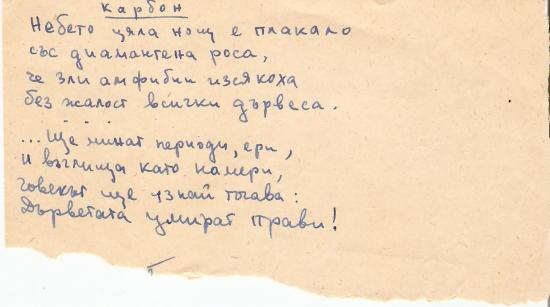 Карбон
Небето цяла нощ е плакало
със диамантена роса,
че зли амфибии изсякоха
без жалост всички дървеса.
...
...Ще минат периоди, ери,
и въглища като намери,
човекът ще узнай тогава:
Дърветата умират прави!